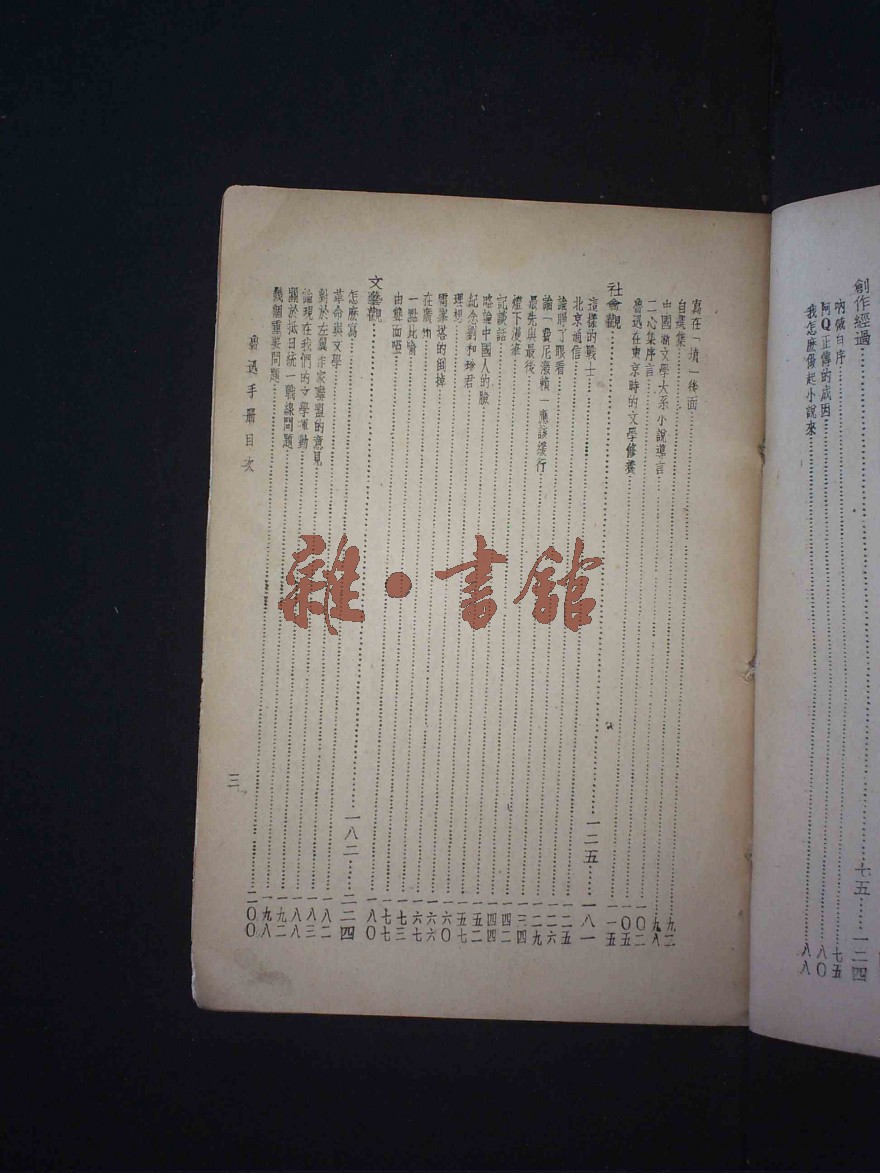 創作經過……七五……一二四
吶喊自序……七五
阿Q正傳的成因……八〇
我怎麽做起小說來……八八
寫在「墳」後面……九二
自選集……九八
中國新文學大系小說導言……一〇二
二心集序言……一〇五
魯迅在東京時的文學修養……一一五
社會觀……一二五……一八一
這樣的戰士……一二五
北京通信……一二六
論睜了眼看……一二九
論「費厄潑賴」應該緩行……一三四
最先與最後……一四二
燈下漫筆……一四四
記談話……一五二
略論中國人的臉……一五七
紀念劉和珍君……一六〇
理想……一六六
雷峯塔的倒掉……一六七
在廣州……一七三
一點比喻……一七七
由聾而啞……一八〇
文藝觀……一八二……二二四
怎麽寫……一八二
革命與文學……一八三
對於左翼作家聯盟的意見……一八八
論現在我們的文學運動……一九二
關於抗日統一戰線問題……一九八
幾個重要問題……二〇〇
魯迅手册目次
三
雜·書館